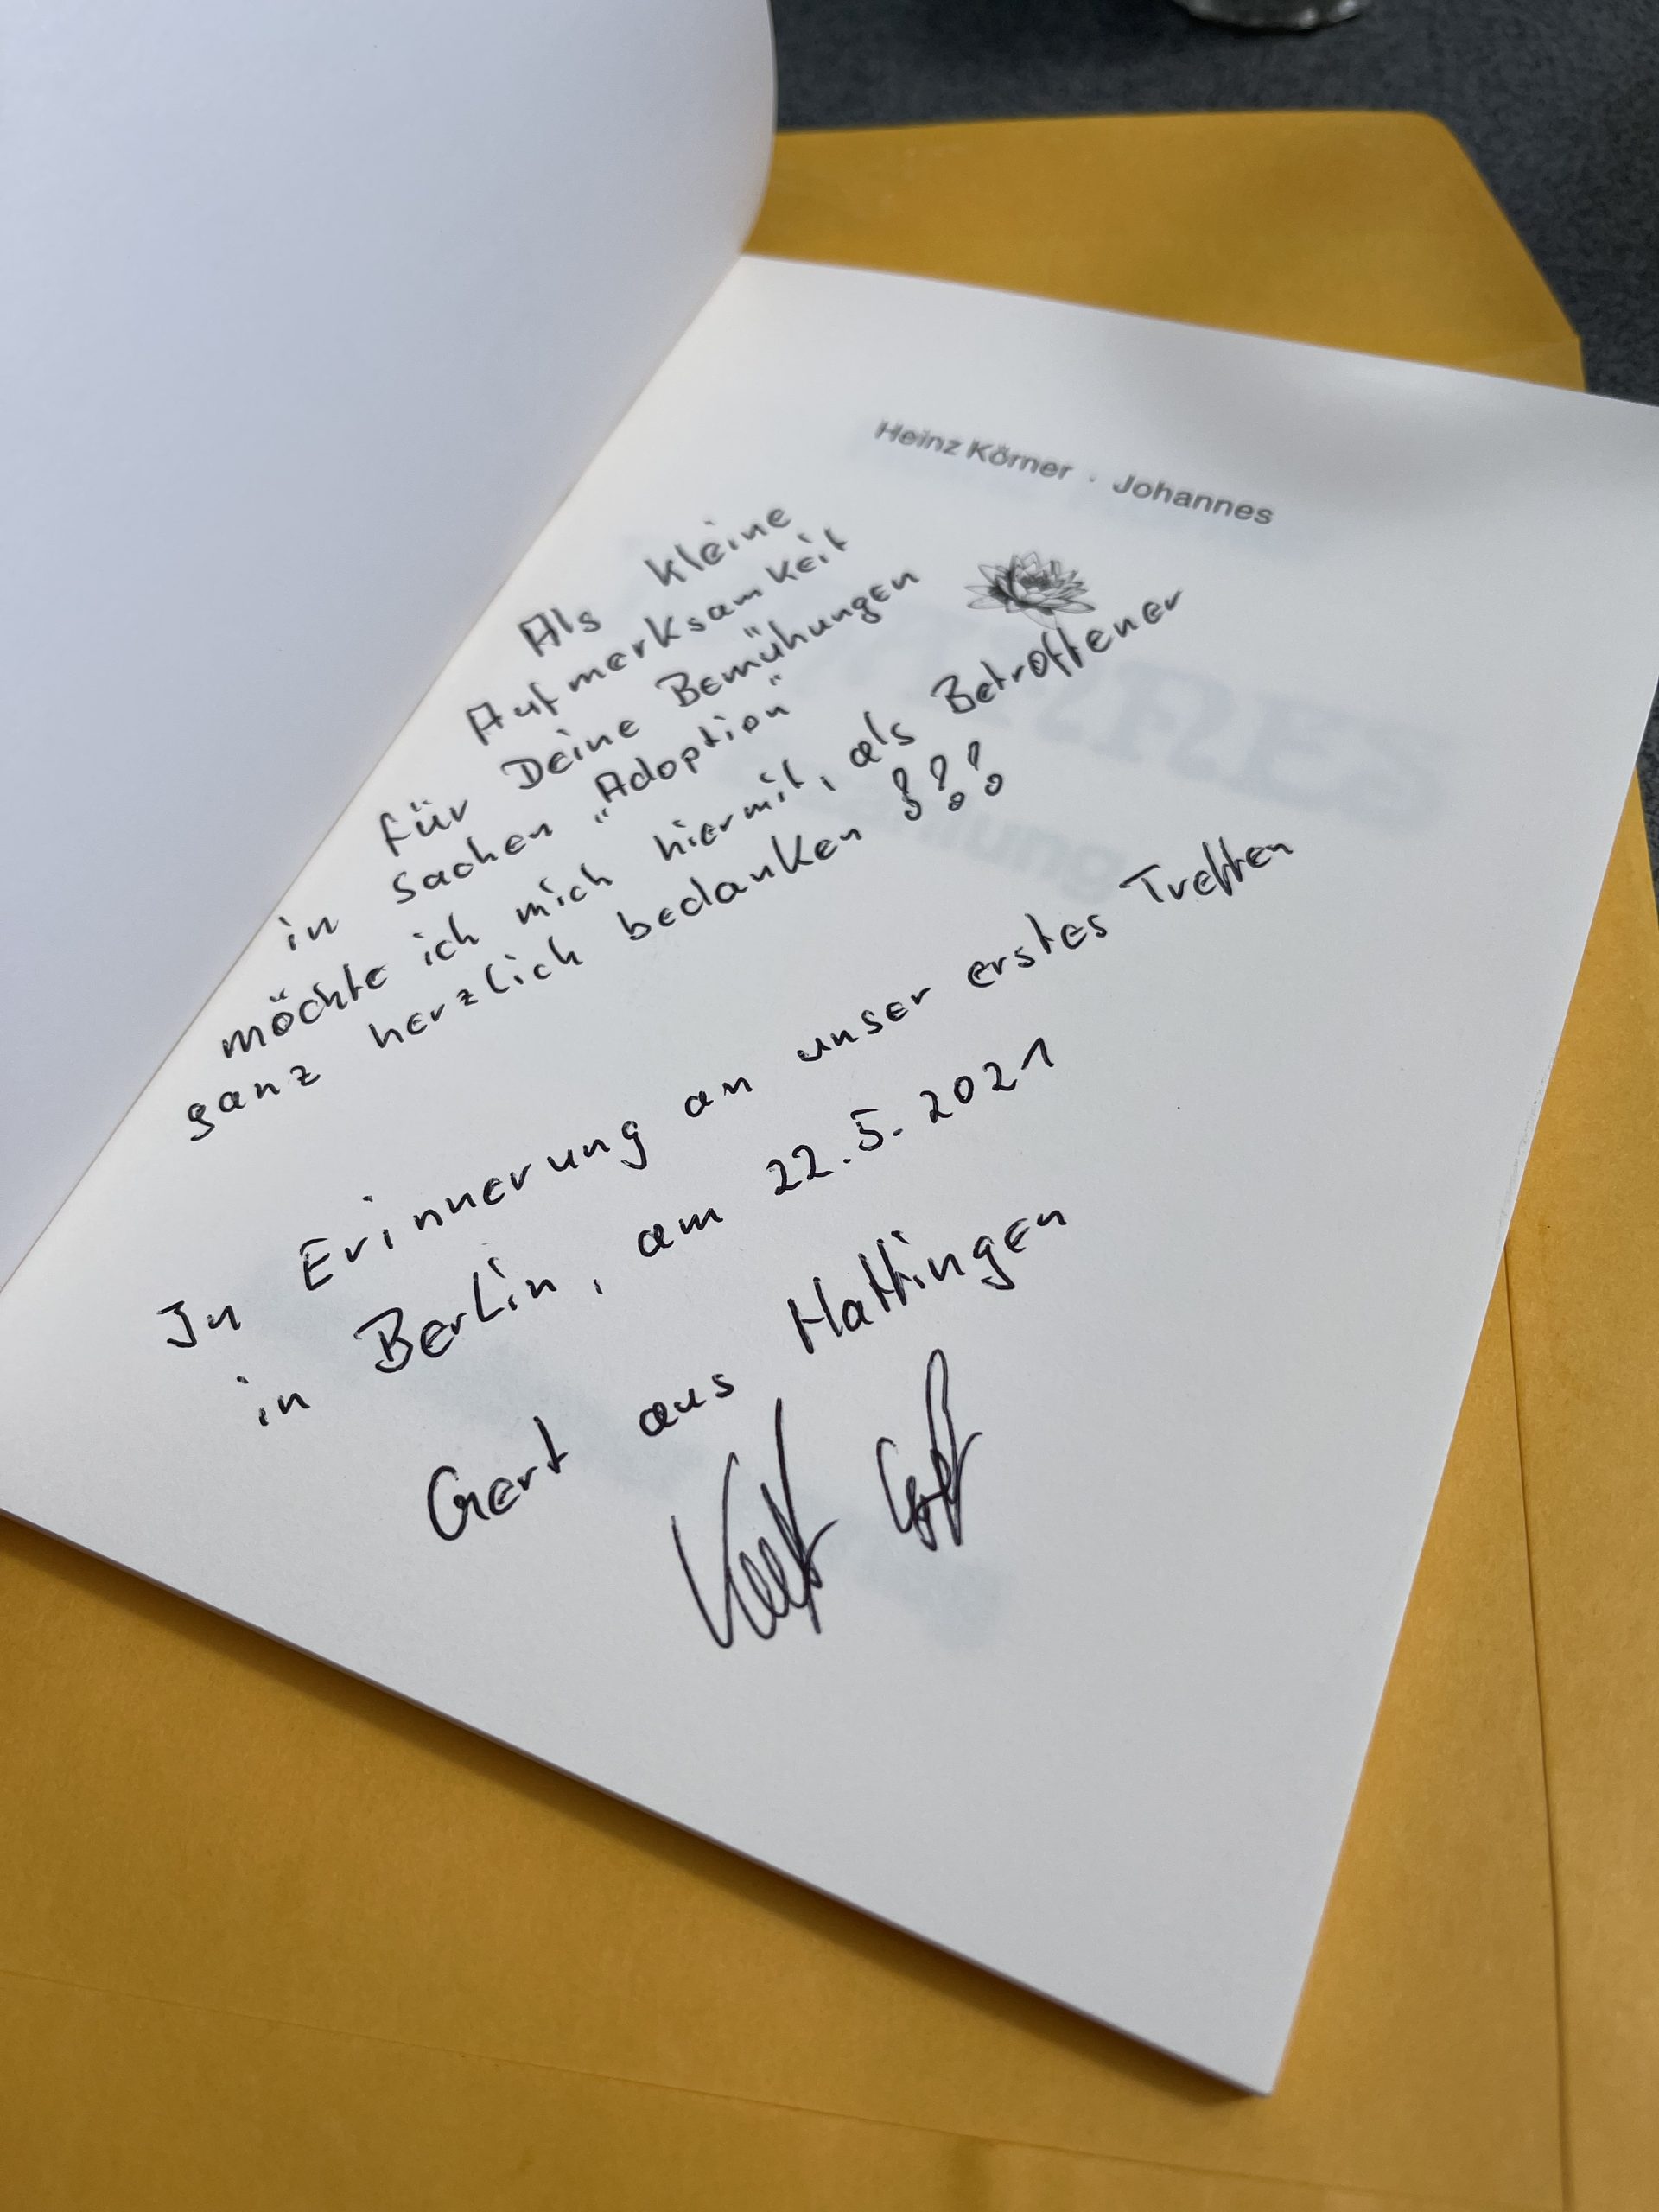 Heinz Körner · Johannes
Als kleine
Aufmerksamkeit
für Deine Bemühungen
in Sachen „Adoption“
möchte ich mich hiermit, als Betroffener
ganz herzlich bedanken !!!
In Erinnerung an unser erstes Treffen
in Berlin, am 22.5.2021
Gert aus Hattingen